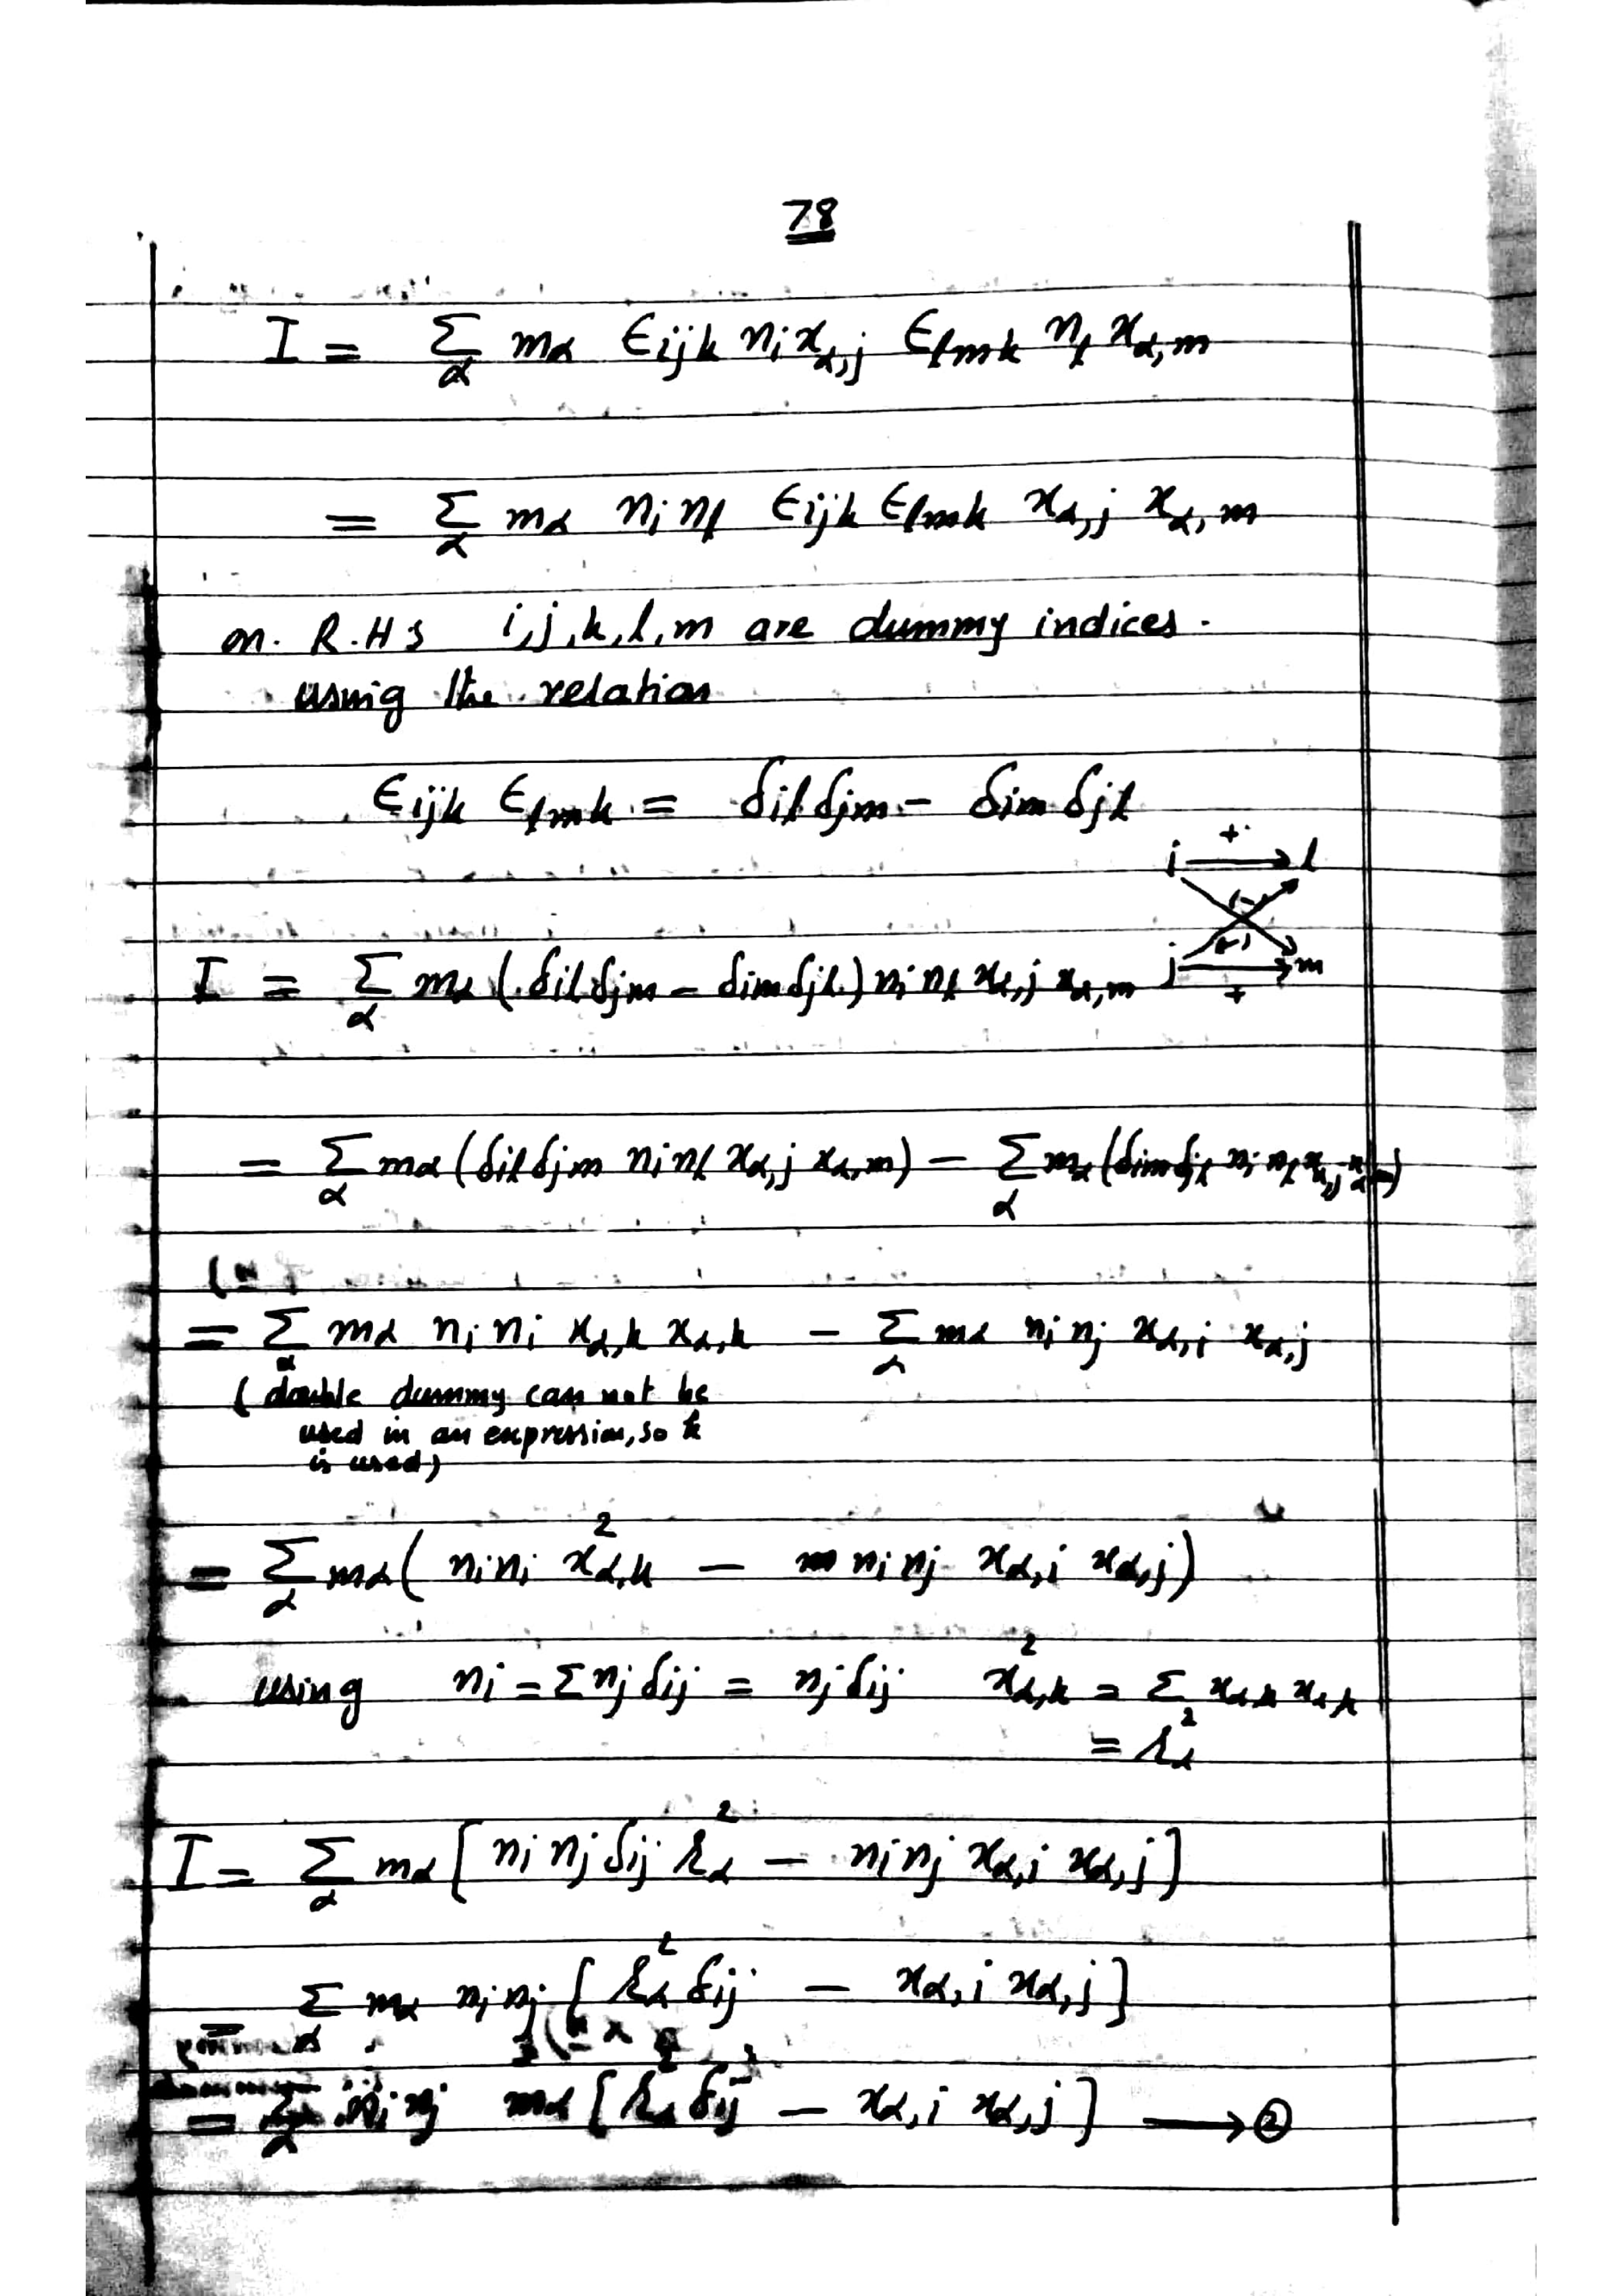 78
I = Σ_α m_α ϵ_ijk n_i x_α,j ϵ_lmk n_l x_α,m
= Σ_α m_α n_i n_l ϵ_ijk ϵ_lmk x_α,j x_α,m
on. R.H.S i,j,k,l,m are dummy indices.
using the relation
ϵ_ijk ϵ_lmk = δ_il δ_jm - δ_im δ_jl
i + l
(-)
(-)
I = Σ_α m_α (δ_il δ_jm - δ_im δ_jl) n_i n_l x_α,j x_α,m j + m
= Σ_α m_α (δ_il δ_jm n_i n_l x_α,j x_α,m) - Σ_α m_α (δ_im δ_jl n_i n_l x_α,j x_α,m)
= Σ_α m_α n_i n_i x_α,k x_α,k - Σ_α m_α n_i n_j x_α,i x_α,j
( double dummy can not be
used in an expression, so k
is used)
= Σ_α m_α ( n_i n_i x²_α,k - n_i n_j x_α,i x_α,j)
using n_i = Σ n_j δ_ij = n_j δ_ij x²_α,k = Σ x_α,k x_α,k
= r²_α
I = Σ_α m_α [ n_i n_j δ_ij r²_α - n_i n_j x_α,i x_α,j ]
= Σ_α m_α n_i n_j [ r²_α δ_ij - x_α,i x_α,j ]
= Σ_α n_i n_j m_α [ r²_α δ_ij - x_α,i x_α,j ] → ②